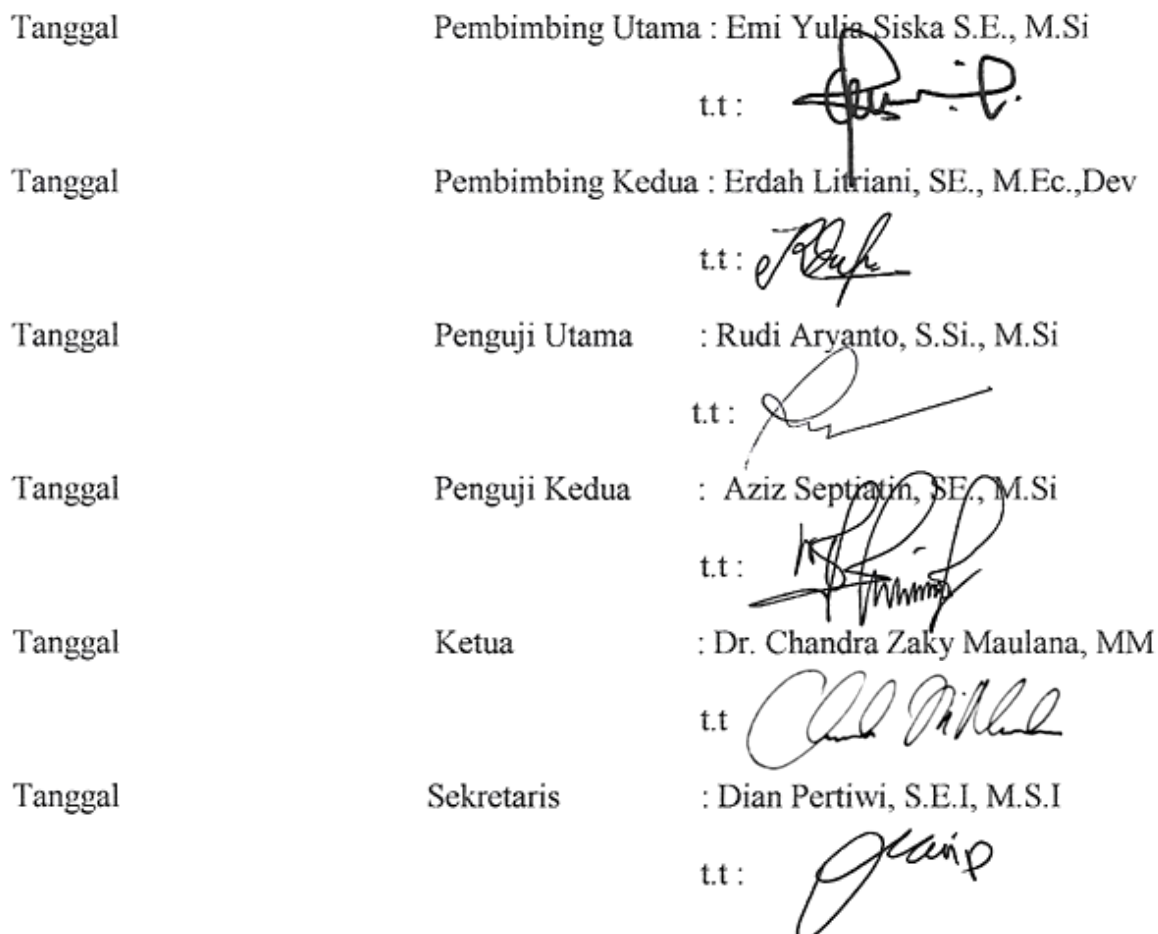 Tanggal Pembimbing Utama : Emi Yulia Siska S.E., M.Si
t.t :
Tanggal Pembimbing Kedua : Erdah Litriani, SE., M.Ec.,Dev
t.t :
Tanggal Penguji Utama : Rudi Aryanto, S.Si., M.Si
t.t :
Tanggal Penguji Kedua : Aziz Septiatin, SE., M.Si
t.t :
Tanggal Ketua : Dr. Chandra Zaky Maulana, MM
t.t
Tanggal Sekretaris : Dian Pertiwi, S.E.I, M.S.I
t.t :